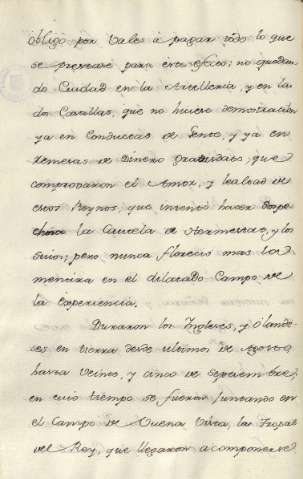 obligo por Vales à pagar todo lo que
se prestase para este efecto; no quedan
do Ciudad en la Andalucia, y en las
dos Castillas, que no hiciese demostracion
ya en Conductas de Gente, y ya en
Remesas de Dinero
comprobaron el Amor, y lealtad de
estos Reynos, que intentó hacer sospe
chosa la Cautela de Armestad, y los
suios; pero nunca florecio mas la
mencira en el dilatado Campo de
la experiencia.
Duraron los Ingleses, y Olande
ses en tierra desde ultimos de Agosto
hasta Veinte, y cinco de Septiembre,
en cuio tiempo se fueron juntando en
el Campo de Buena Vista, las Tropas
del Rey, que llegaron a componerse